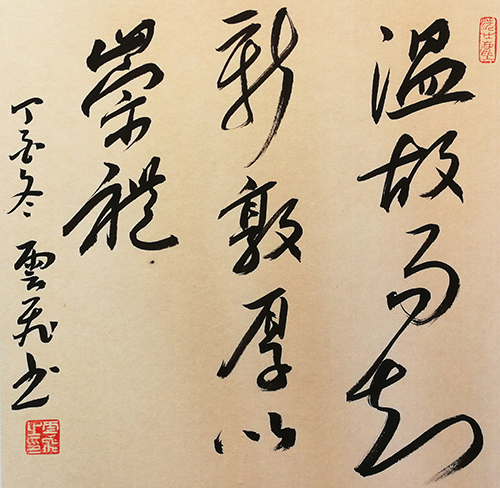 温故而知
新敦厚以
崇禮
丁酉冬 雲飛書